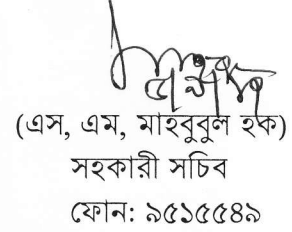 (এস, এম, মাহবুবুল হক)
সহকারী সচিব
ফোন: ৯৫১৫৫৪৯